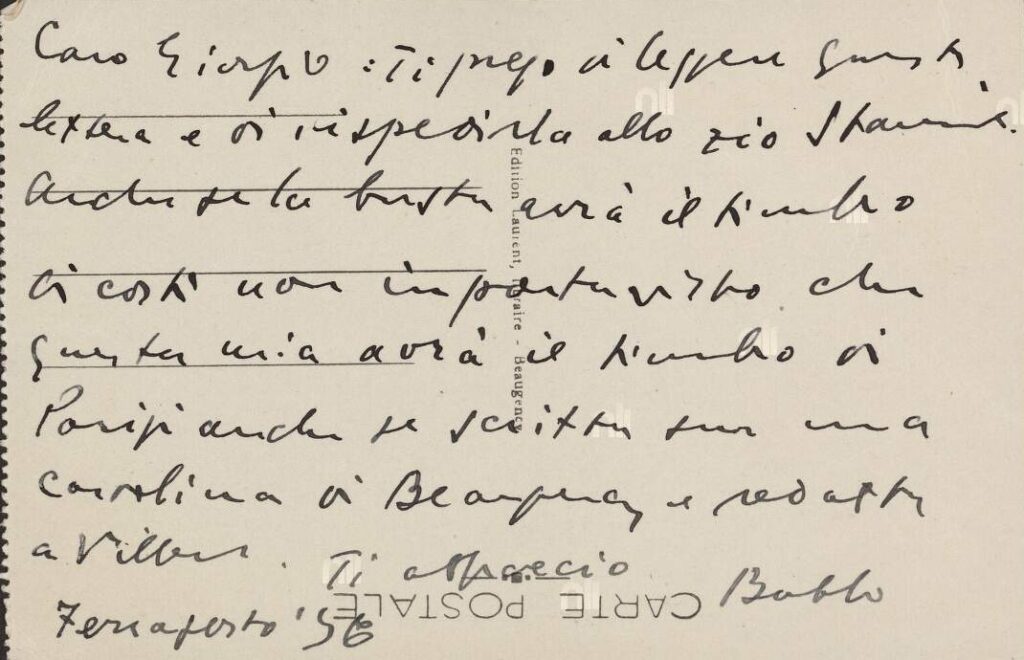 Caro Giorgio : Ti prego di leggere questa
lettera e di rispedirla allo zio
Anche se la busta avrà il timbro
di costì non importa visto che
questa mia avrà il timbro di
Parigi anche se scritta su una
cartolina di Beaugency e redatta
a Villers. Ti abbraccio
Bobbo
Ferragosto '56
Edition Laurent, Libraire - Beaugency
CARTE POSTALE